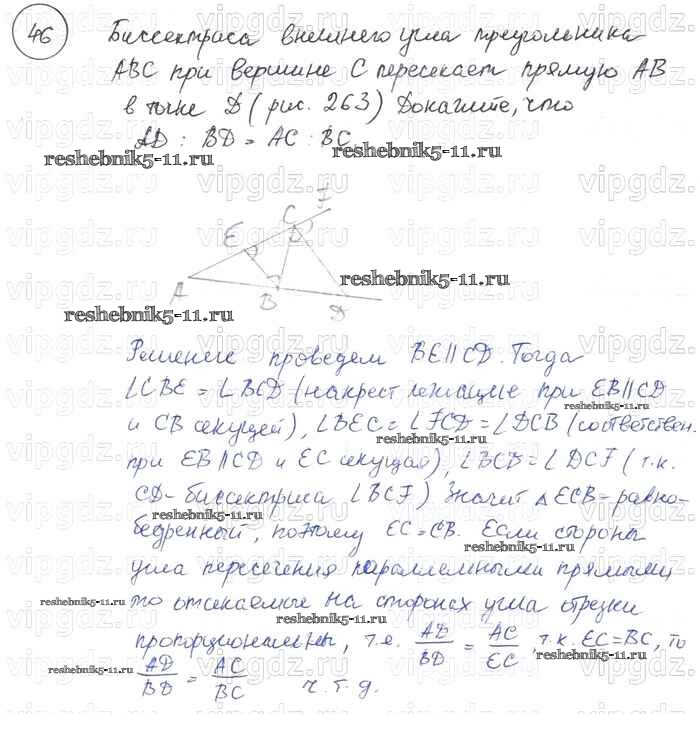 46
Биссектриса внешнего угла треугольника
ABC при вершине C пересекает прямую AB
в точке D (рис. 263) Докажите, что
AD : BD = AC : BC
reshebnik5-11.ru
F
C
E
reshebnik5-11.ru
A
B
D
reshebnik5-11.ru
Решение проведем BE||CD. Тогда
∠CBE = ∠BCD (накрест лежащие при EB||CD
reshebnik5-11.ru
и CB секущей), ∠BEC = ∠FCD = ∠DCB (соответствен.
при EB||CD и EC секущая), ∠BCD = ∠DCF (т.к.
reshebnik5-11.ru
CD - биссектриса ∠BCF) Значит △ECB - равно-
reshebnik5-11.ru
бедренный, поэтому EC = CB. Если стороны
reshebnik5-11.ru
угла пересечения параллельными прямыми
то отсекаемые на сторонах угла отрезки
reshebnik5-11.ru
reshebnik5-11.ru
пропорциональны, т.е. AD/BD = AC/EC, т.к. EC=BC, то
reshebnik5-11.ru
AD/BD = AC/BC ч.т.д.